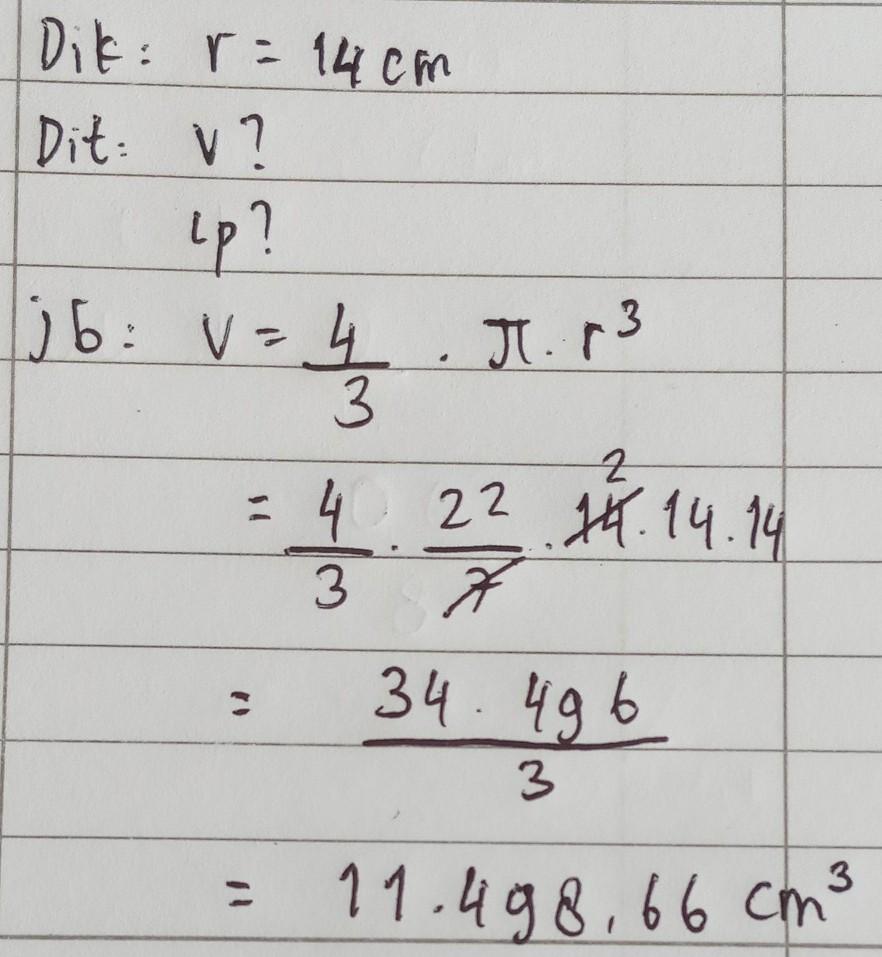 Dik: r = 14 cm
Dit: V?
Lp?
jb: V = 4/3 . π . r³
= 4/3 . 22/7 . 14 2 . 14 . 14
= 34.496/3
= 11.498,66 cm³